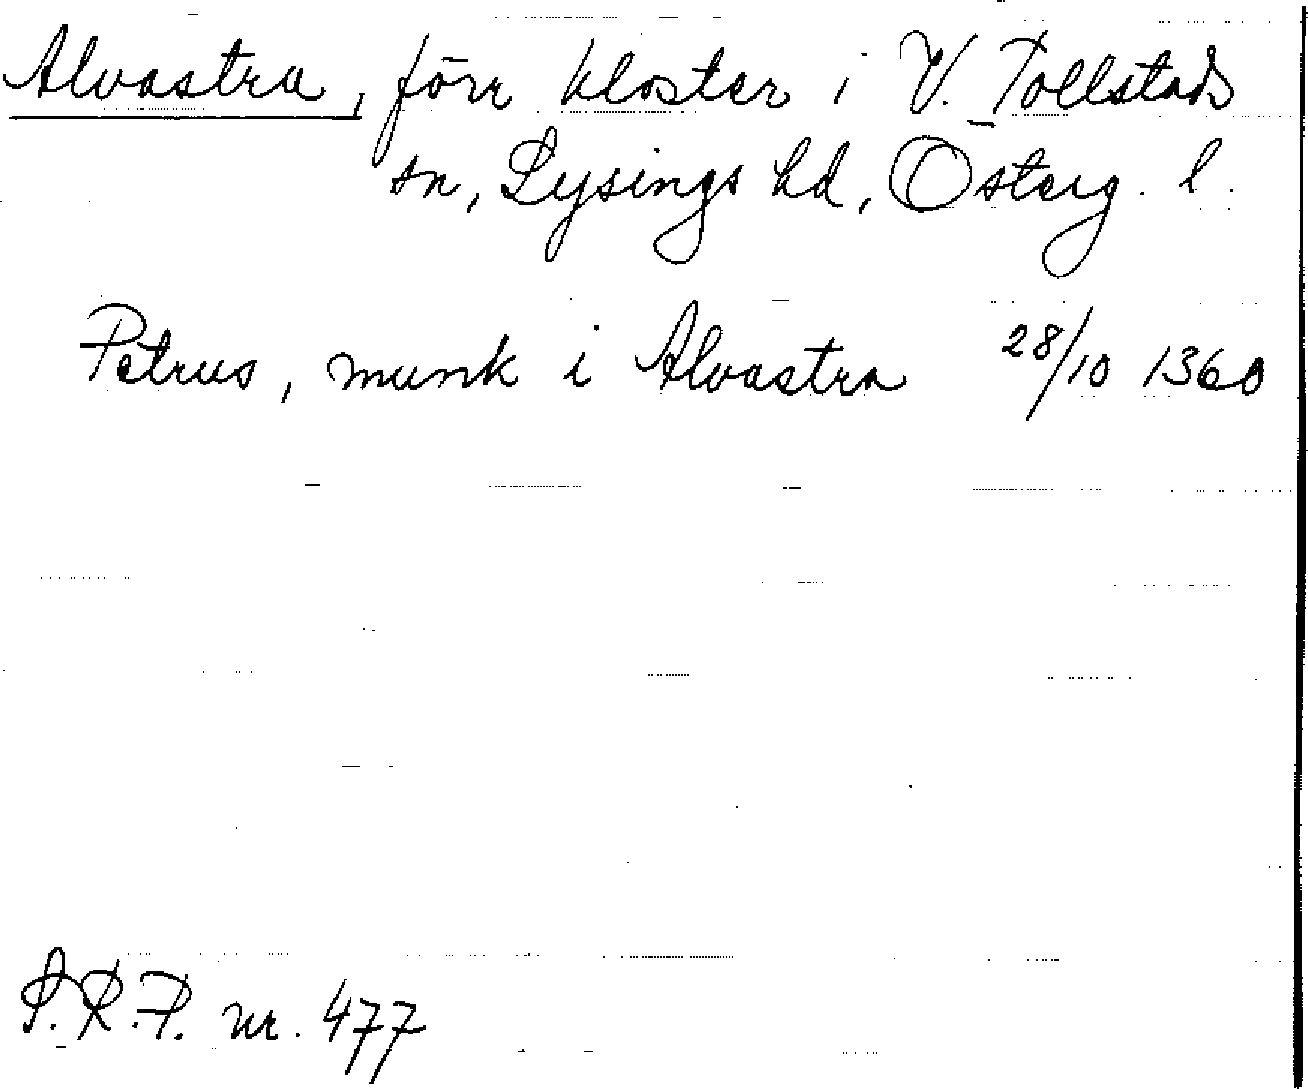 Alvastra, förr kloster i V. Tollstads
sn, Lysings hd, Österg. l.
Petrus, munk i Alvastra 28/10 1360
S.R.P. nr. 477